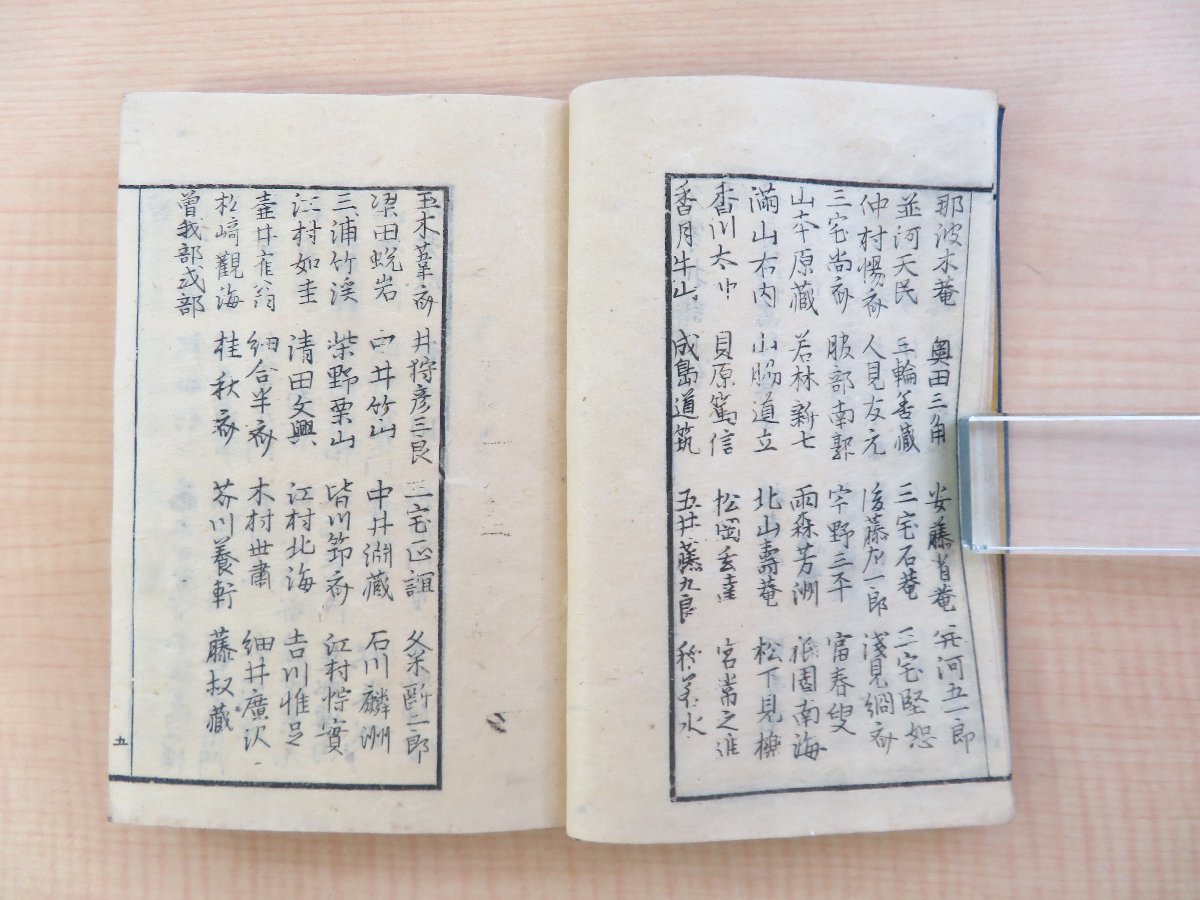 那波木菴 奥田三角 安藤省菴 并河五一郎
並河天民 三輪善藏 三宅石菴 三宅堅恕
仲村惕斎 人見友元 後藤左一郎 淺見絅斎
三宅尚斎 服部南郭 宇野三平 富春叟
山本原藏 若林新七 雨森芳洲 祇園南海
滿山右内 小腸道立 北山壽菴 松下見樵
香川太冲 貝原篤信 松岡玄達 宮常之進
香月牛山 成島道筑 五井藤九良 水
玉木葦斎 井狩彦三良 三宅正誼 久米断二郎
梁田蛻岩 中井竹山 中井淵藏 石川麟洲
三浦竹溪 柴野栗山 皆川節斎 江村悰實
江村如圭 清田文興 江村北海 吉川惟足
壷井雀翁 細合半斎 木村世肅 細井廣沢
松﨑觀海 桂秋斎 芥川養軒 藤叔藏
曽我部式部
五